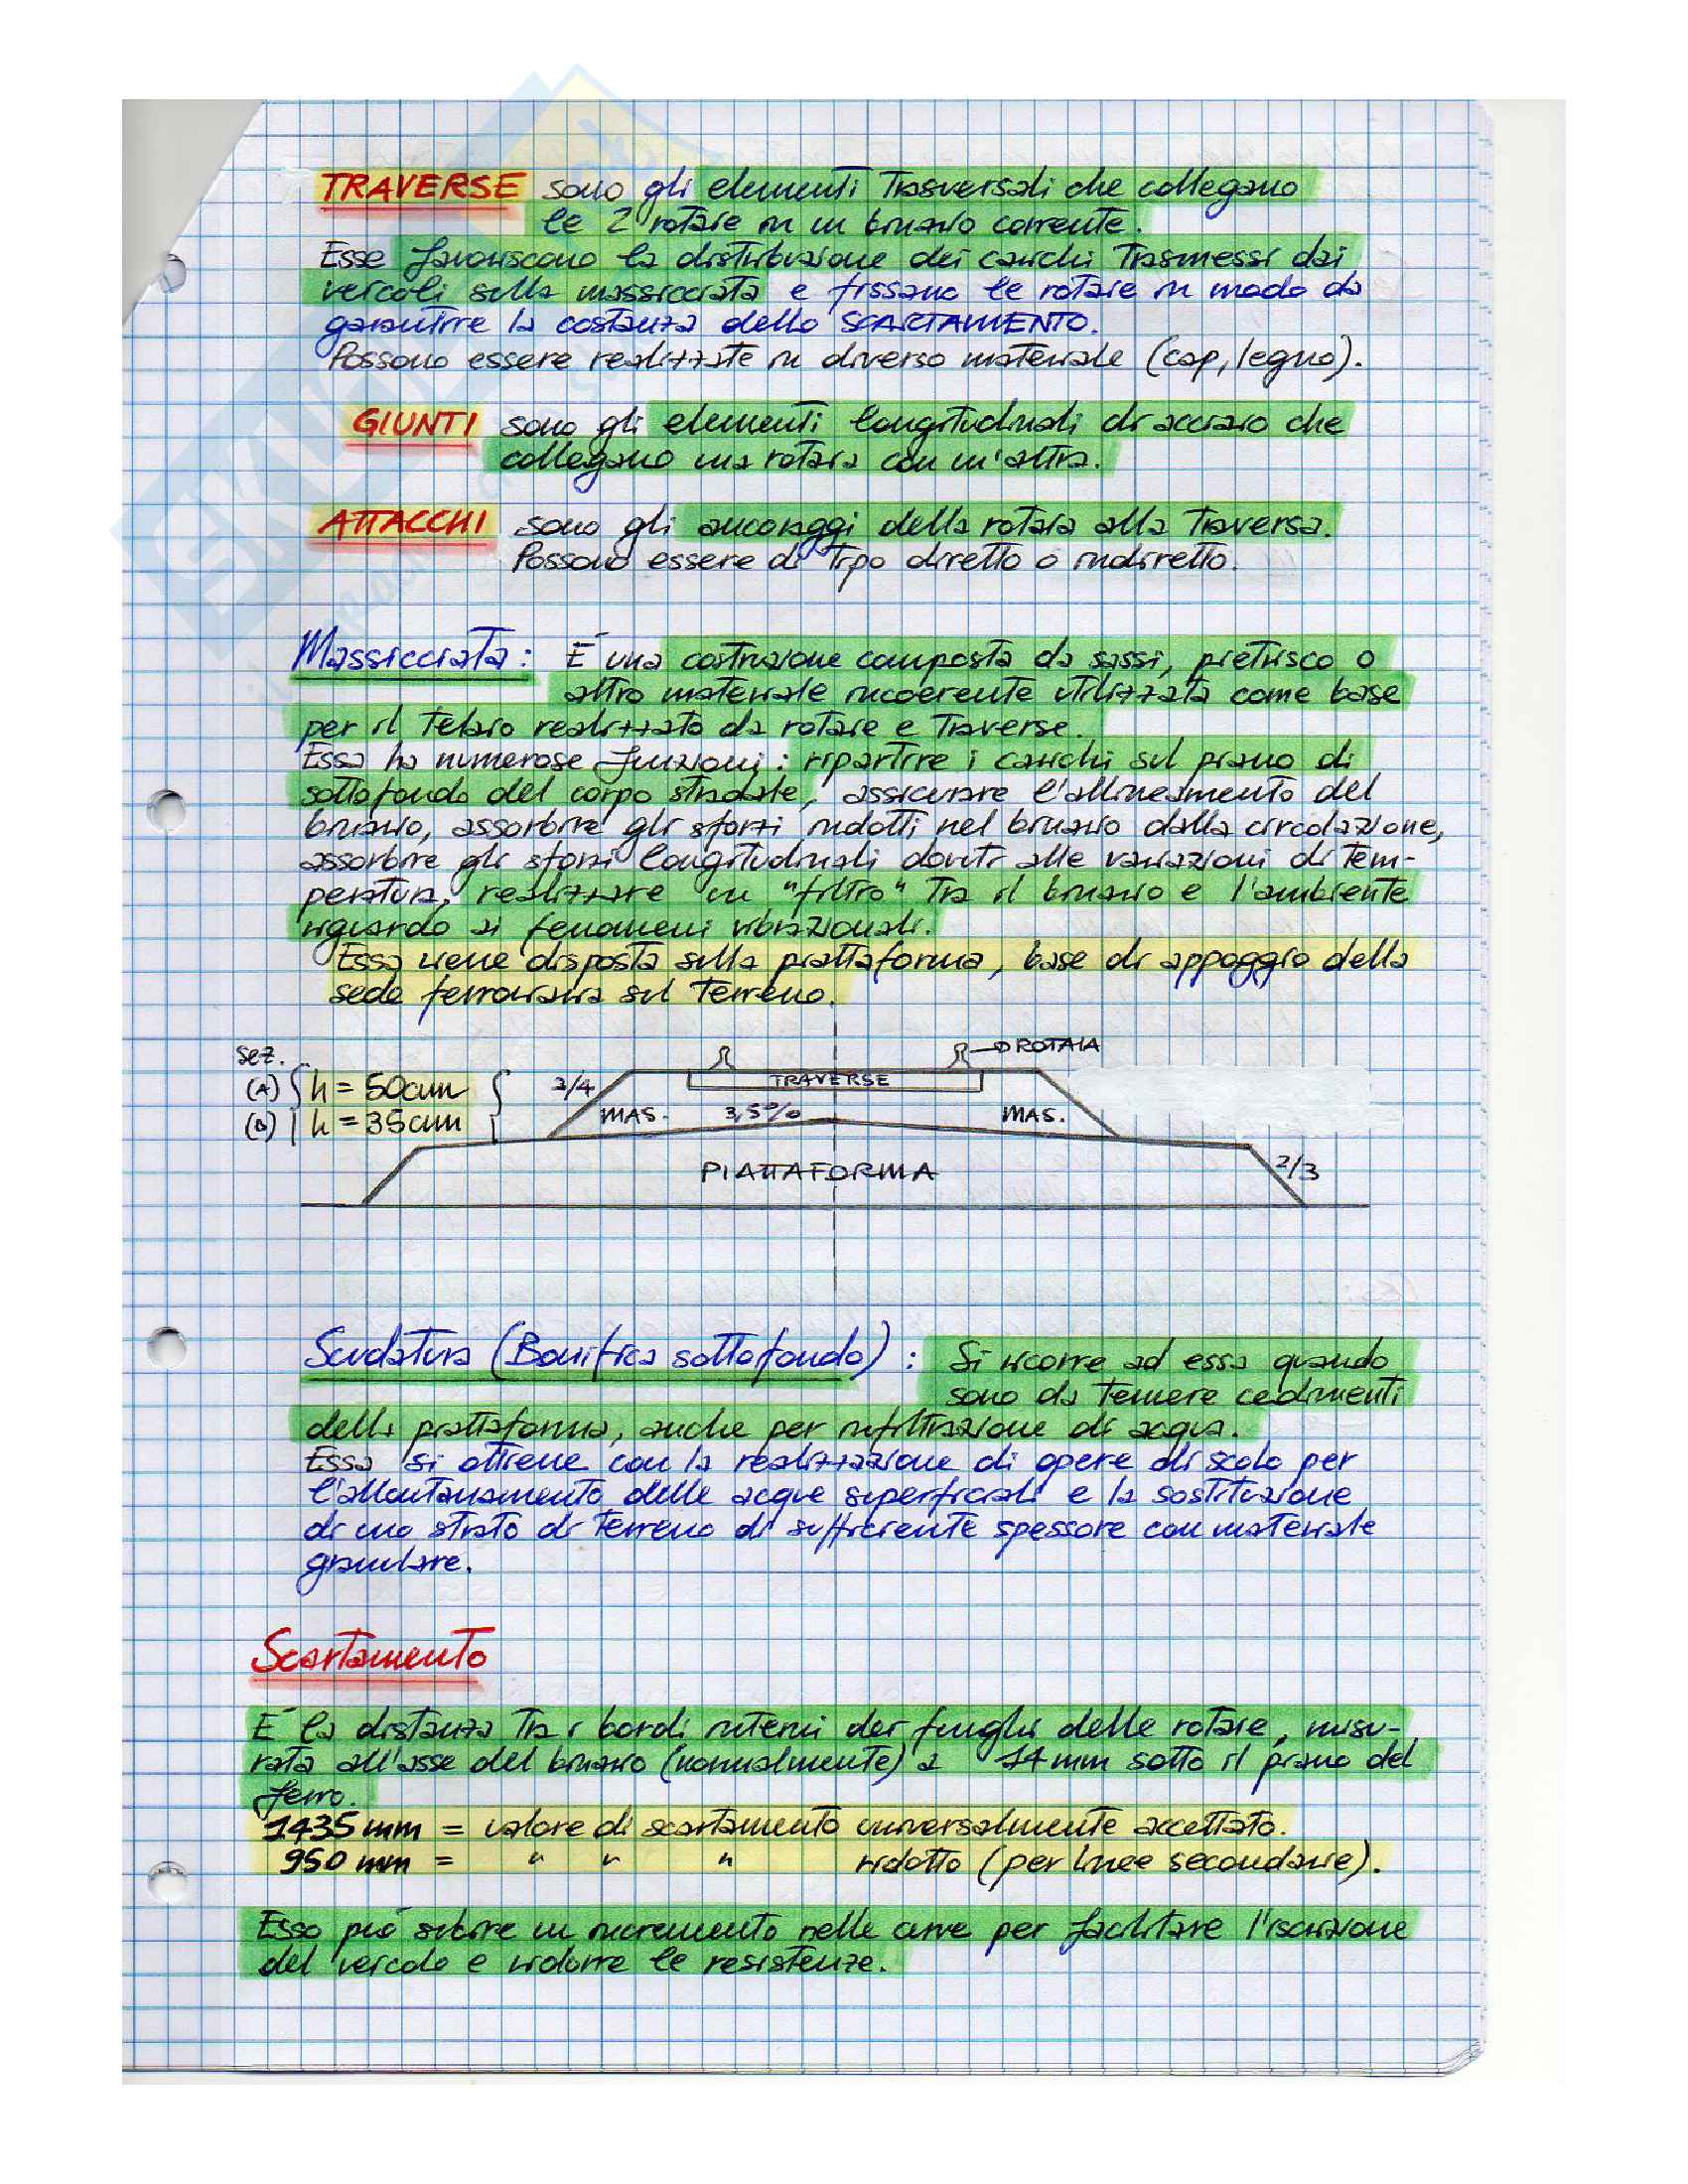 TRAVERSE sono gli elementi trasversali che collegano
le 2 rotaie in un binario corrente.
Esse favoriscono la distribuzione dei carichi trasmessi dai
veicoli sulla massicciata e fissano le rotaie in modo da
garantire la costanza dello SCARTAMENTO.
Possono essere realizzate in diverso materiale (cap, legno).
GIUNTI sono gli elementi longitudinali di acciaio che
collegano una rotaia con un'altra.
ATTACCHI sono gli ancoraggi della rotaia alla traversa.
Possono essere di tipo diretto o indiretto.
Massicciata: È una costruzione composta da sassi, pietrisco o
altro materiale incoerente utilizzata come base
per il telaio realizzato da rotaie e traverse.
Essa ha numerose funzioni: ripartire i carichi sul piano di
sottofondo del corpo stradale, assicurare l'allineamento del
binario, assorbire gli sforzi indotti nel binario dalla circolazione,
assorbire gli sforzi longitudinali dovuti alle variazioni di tem-
peratura, realizzare un "filtro" tra il binario e l'ambiente
riguardo ai fenomeni vibrazionali.
Essa viene disposta sulla piattaforma, base di appoggio della
sede ferroviaria sul terreno.
sez.
(A) h = 50cm
(B) h = 35cm
3/4
ROTAIA
TRAVERSE
MAS. 3,5% MAS.
PIATTAFORMA
2/3
Scudatura (Bonifica sottofondo): Si ricorre ad essa quando
sono da temere cedimenti
della piattaforma, anche per infiltrazione di acqua.
Essa si ottiene con la realizzazione di opere di scolo per
l'allontanamento delle acque superficiali e la sostituzione
di uno strato di terreno di sufficiente spessore con materiale
granulare.
Scartamento
È la distanza tra i bordi interni dei funghi delle rotaie, misu-
rata all'asse del binario (normalmente) a 14 mm sotto il piano del
ferro.
1435 mm = valore di scartamento universalmente accettato.
950 mm = " " " ridotto (per linee secondarie).
Esso può subire un incremento nelle curve per facilitare l'iscrizione
del veicolo e ridurre le resistenze.